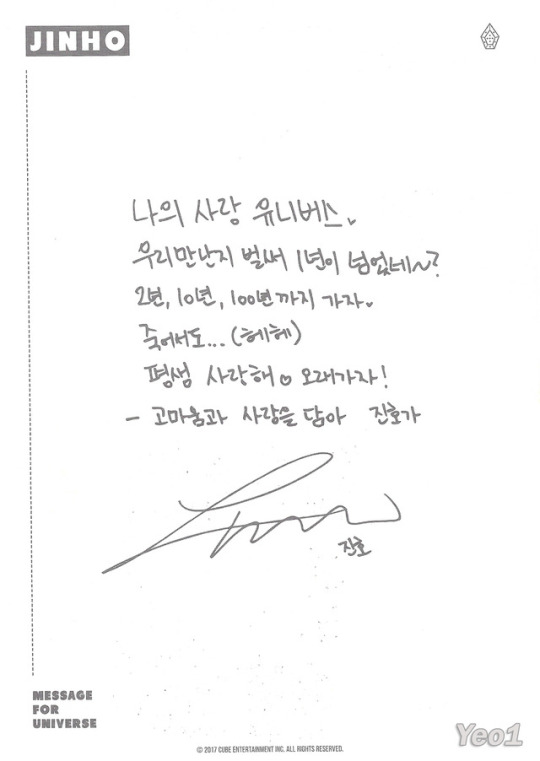 JINHO
나의 사랑 유니버스♥
우리만난지 벌써 1년이 넘었네~?
2년, 10년, 100년까지 가자♥
죽어서도...(헤헤)
평생 사랑해♡ 오래가자!
- 고마움과 사랑을 담아 진호가
진호
MESSAGE
FOR
UNIVERSE
© 2017 CUBE ENTERTAINMENT INC. ALL RIGHTS RESERVED.
Yeo1